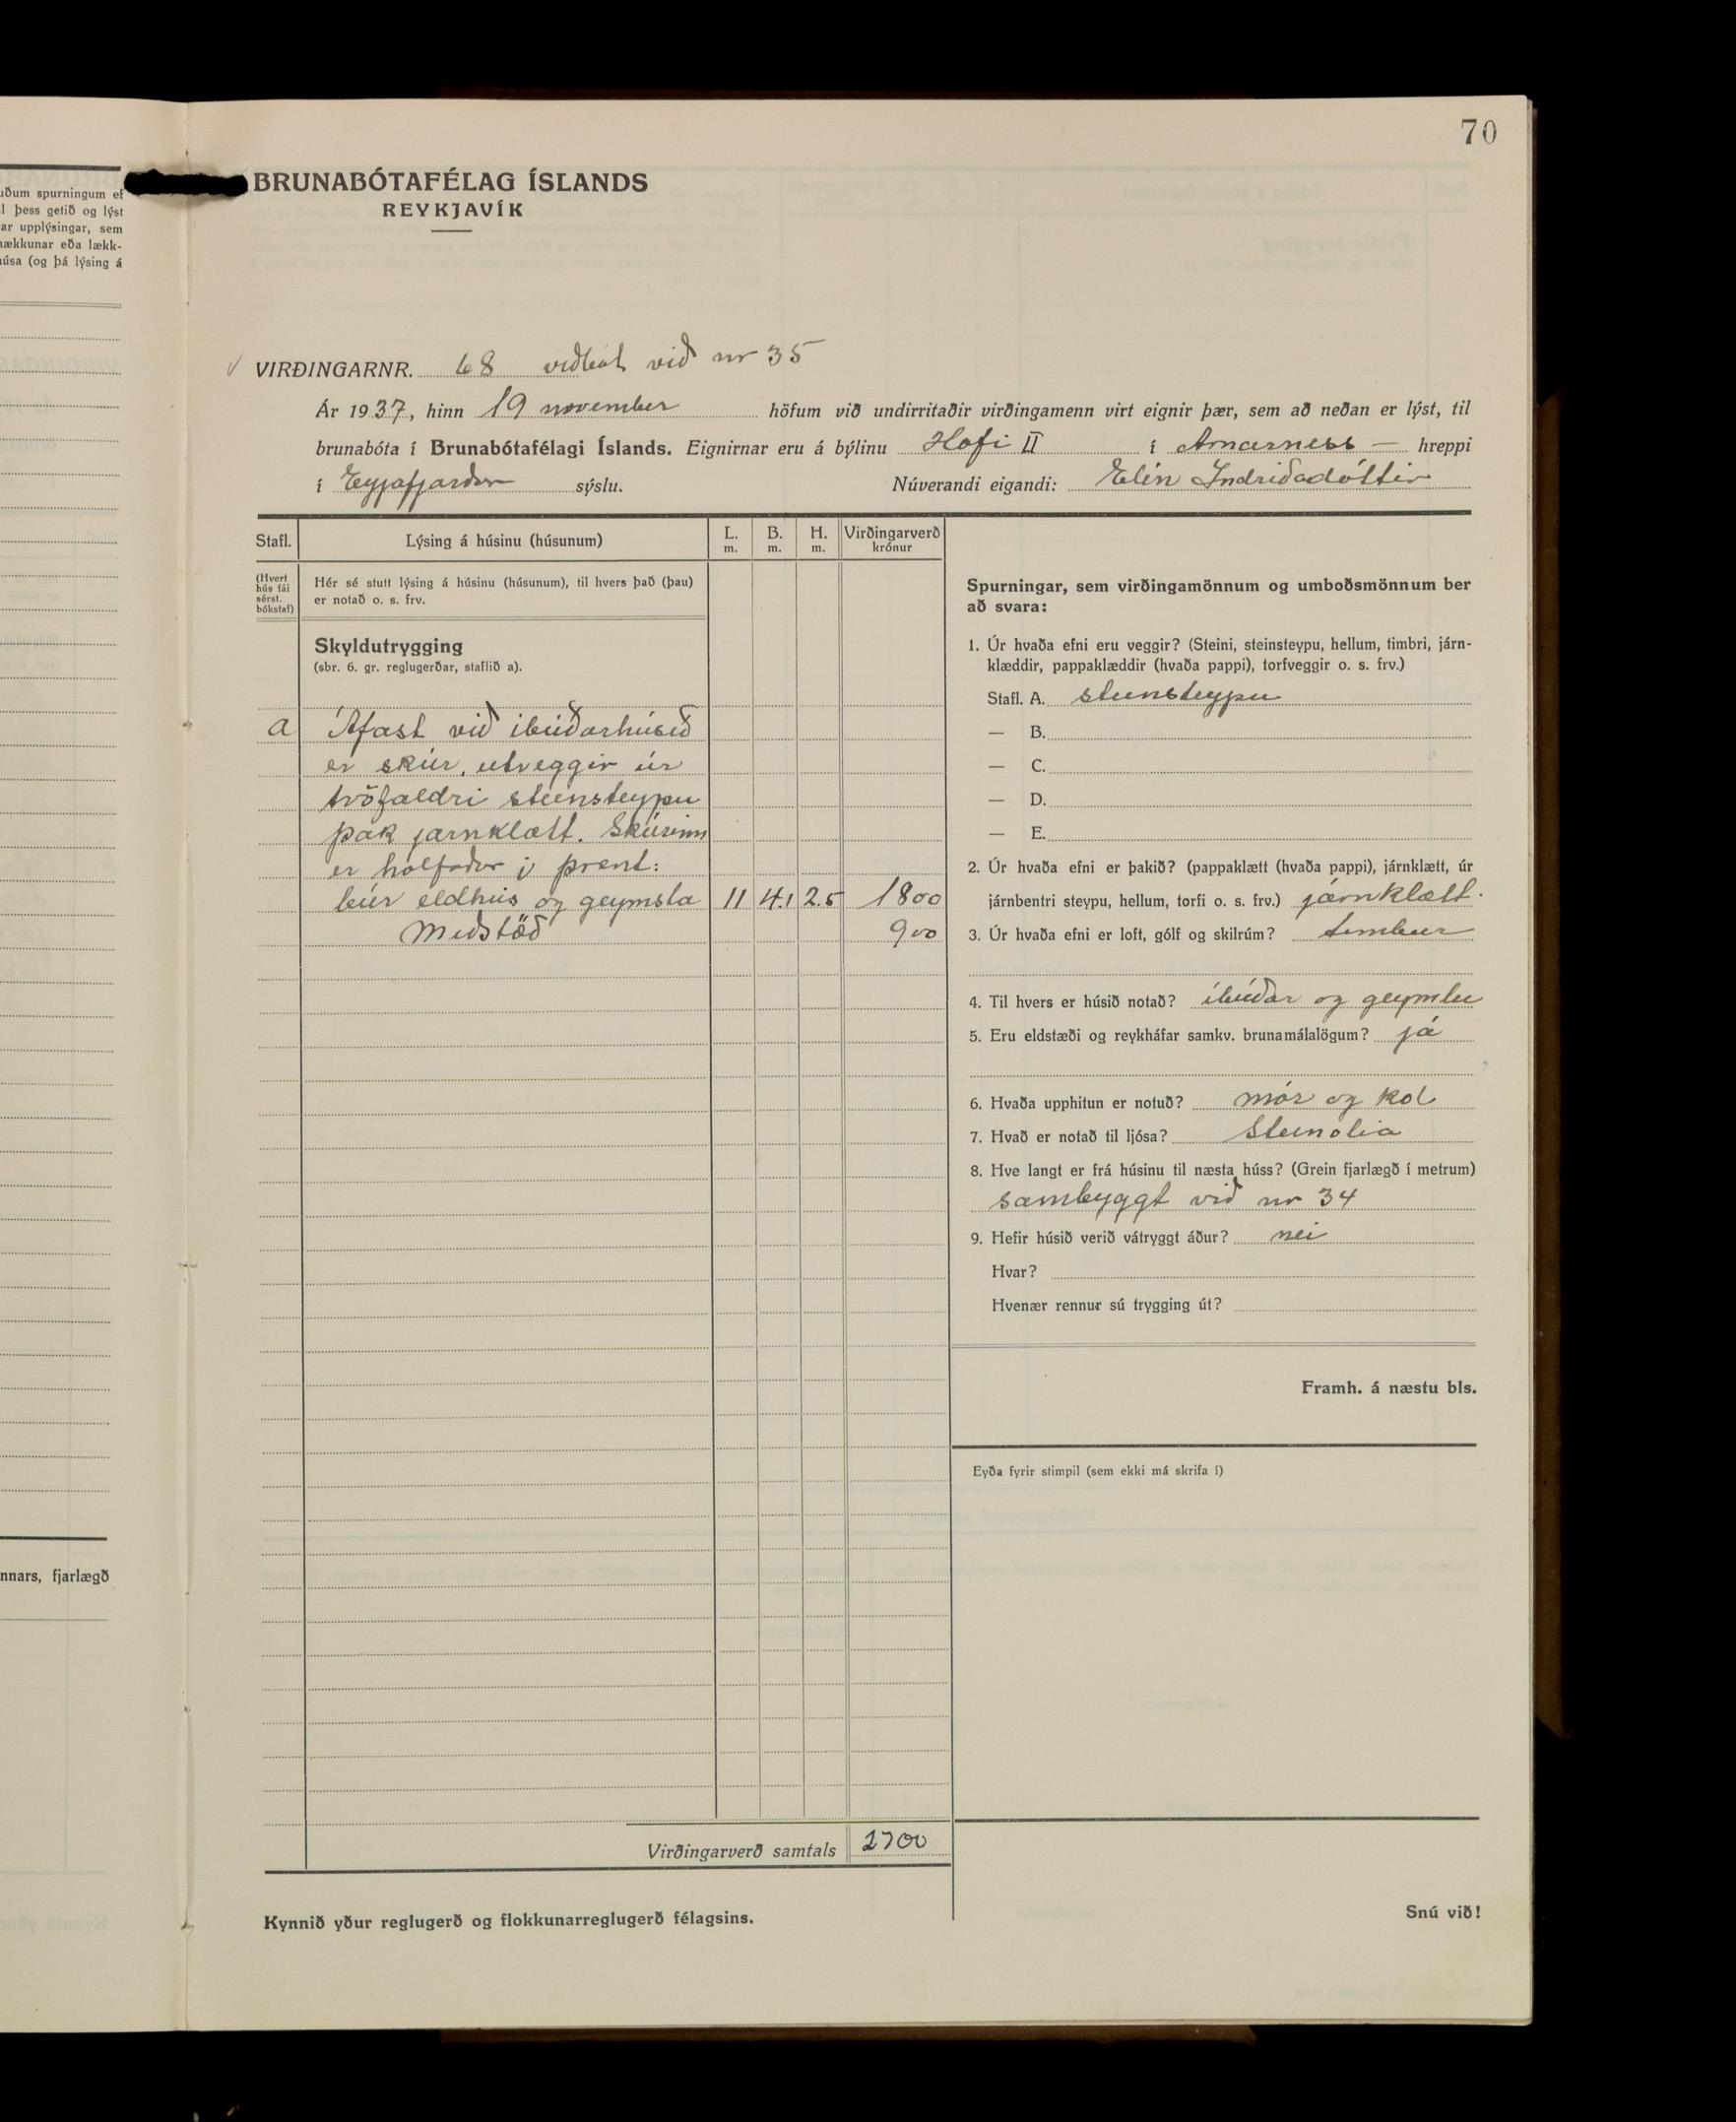 70
uðum spurningum ef
l þess getið og lýst
ar upplýsingar, sem
hækkunar eða lækk-
húsa (og þá lýsing á
nnars, fjarlægð
BRUNABÓTAFÉLAG ÍSLANDS
REYKJAVÍK
VIRÐINGARNR. 68 viðbót við nr 35
Ár 1937, hinn 19 november höfum við undirritaðir virðingamenn virt eignir þær, sem að neðan er lýst, til
brunabóta í Brunabótafélagi Íslands. Eignirnar eru á býlinu Hofi II í Arnarness — hreppi
í Eyjafjarðar sýslu. Núverandi eigandi: Elín Indriðadóttir
Stafl. Lýsing á húsinu (húsunum) L. m. B. m. H. m. Virðingarverð krónur
(Hvert hús fái sérst. bókstaf)
Hér sé stutt lýsing á húsinu (húsunum), til hvers það (þau)
er notað o. s. frv.
Skyldutrygging
(sbr. 6. gr. reglugerðar, staflið a).
a Áfast við íbúðarhúsið
er skúr, utveggir úr
tvöfaldri steinsteypu
þak jarnklætt. Skúrinn
er holfaður í þrent:
búr eldhús og geymsla 11 4.1 2.5 1800
Miðstöð 900
Virðingarverð samtals 2700
Kynnið yður reglugerð og flokkunarreglugerð félagsins.
Spurningar, sem virðingamönnum og umboðsmönnum ber
að svara:
1. Úr hvaða efni eru veggir? (Steini, steinsteypu, hellum, timbri, járn-
klæddir, pappaklæddir (hvaða pappi), torfveggir o. s. frv.)
Stafl. A. steinsteypu
— B.
— C.
— D.
— E.
2. Úr hvaða efni er þakið? (pappaklætt (hvaða pappi), járnklætt, úr
járnbentri steypu, hellum, torfi o. s. frv.) járnklætt.
3. Úr hvaða efni er loft, gólf og skilrúm? timbur
4. Til hvers er húsið notað? íbúðar og geymslu
5. Eru eldstæði og reykháfar samkv. brunamálalögum? já
6. Hvaða upphitun er notuð? mór og kol
7. Hvað er notað til ljósa? Steinolia
8. Hve langt er frá húsinu til næsta húss? (Grein fjarlægð í metrum)
sambyggt við nr 34
9. Hefir húsið verið vátryggt áður? nei
Hvar?
Hvenær rennur sú trygging út?
Framh. á næstu bls.
Eyða fyrir stimpil (sem ekki má skrifa í)
Snú við!